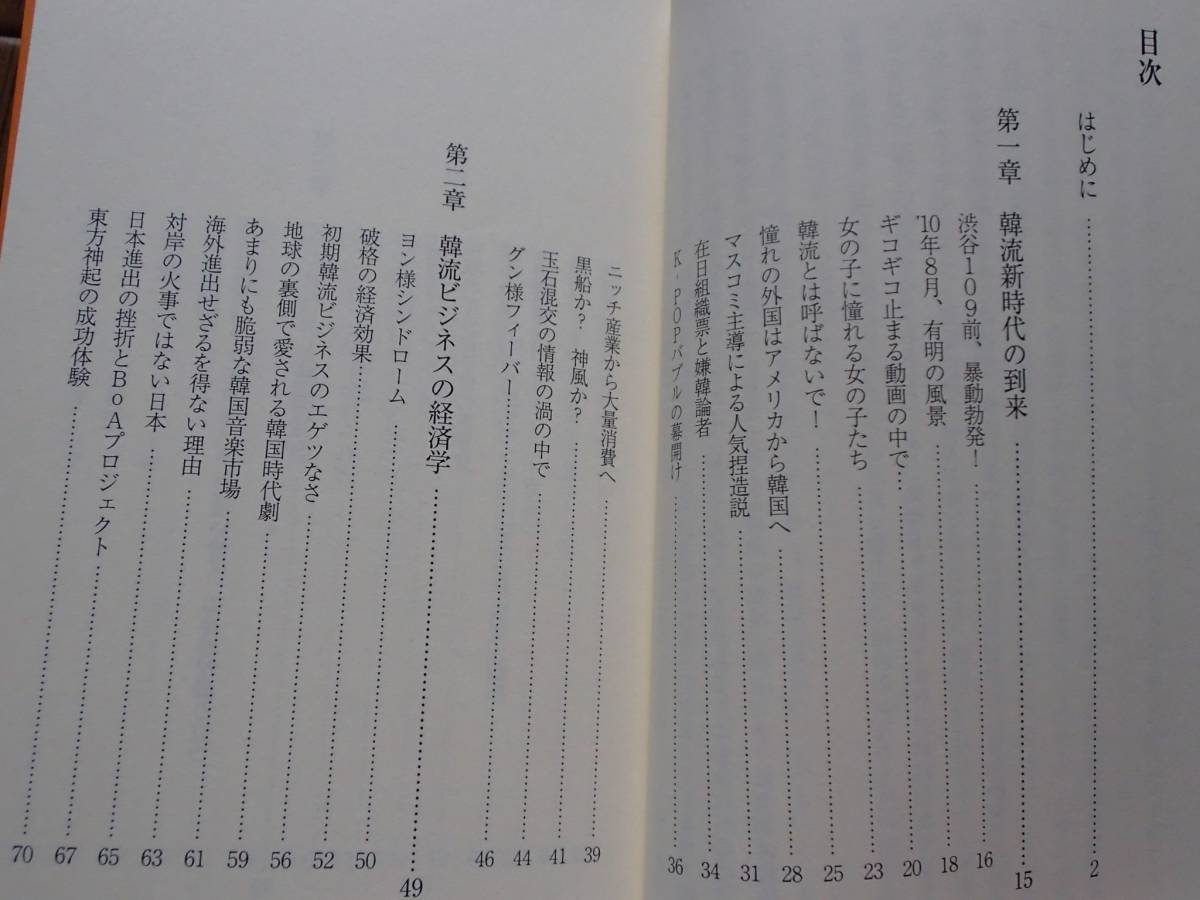 目次
はじめに……2
第一章　韓流新時代の到来……15
渋谷109前、暴動勃発！……16
'10年8月、有明の風景……18
ギコギコ止まる動画の中で……20
女の子に憧れる女の子たち……23
韓流とは呼ばないで！……25
憧れの外国はアメリカから韓国へ……28
マスコミ主導による人気捏造説……31
在日組織票と嫌韓論者……34
K-POPバブルの幕開け……36
ニッチ産業から大量消費へ……39
黒船か？　神風か？……41
玉石混交の情報の渦の中で……44
グン様フィーバー……46
第二章　韓流ビジネスの経済学……49
ヨン様シンドローム……50
破格の経済効果……52
初期韓流ビジネスのエゲツなさ……56
地球の裏側で愛される韓国時代劇……59
あまりにも脆弱な韓国音楽市場……61
海外進出せざるを得ない理由……63
対岸の火事ではない日本……65
日本進出の挫折とBoAプロジェクト……67
東方神起の成功体験……70